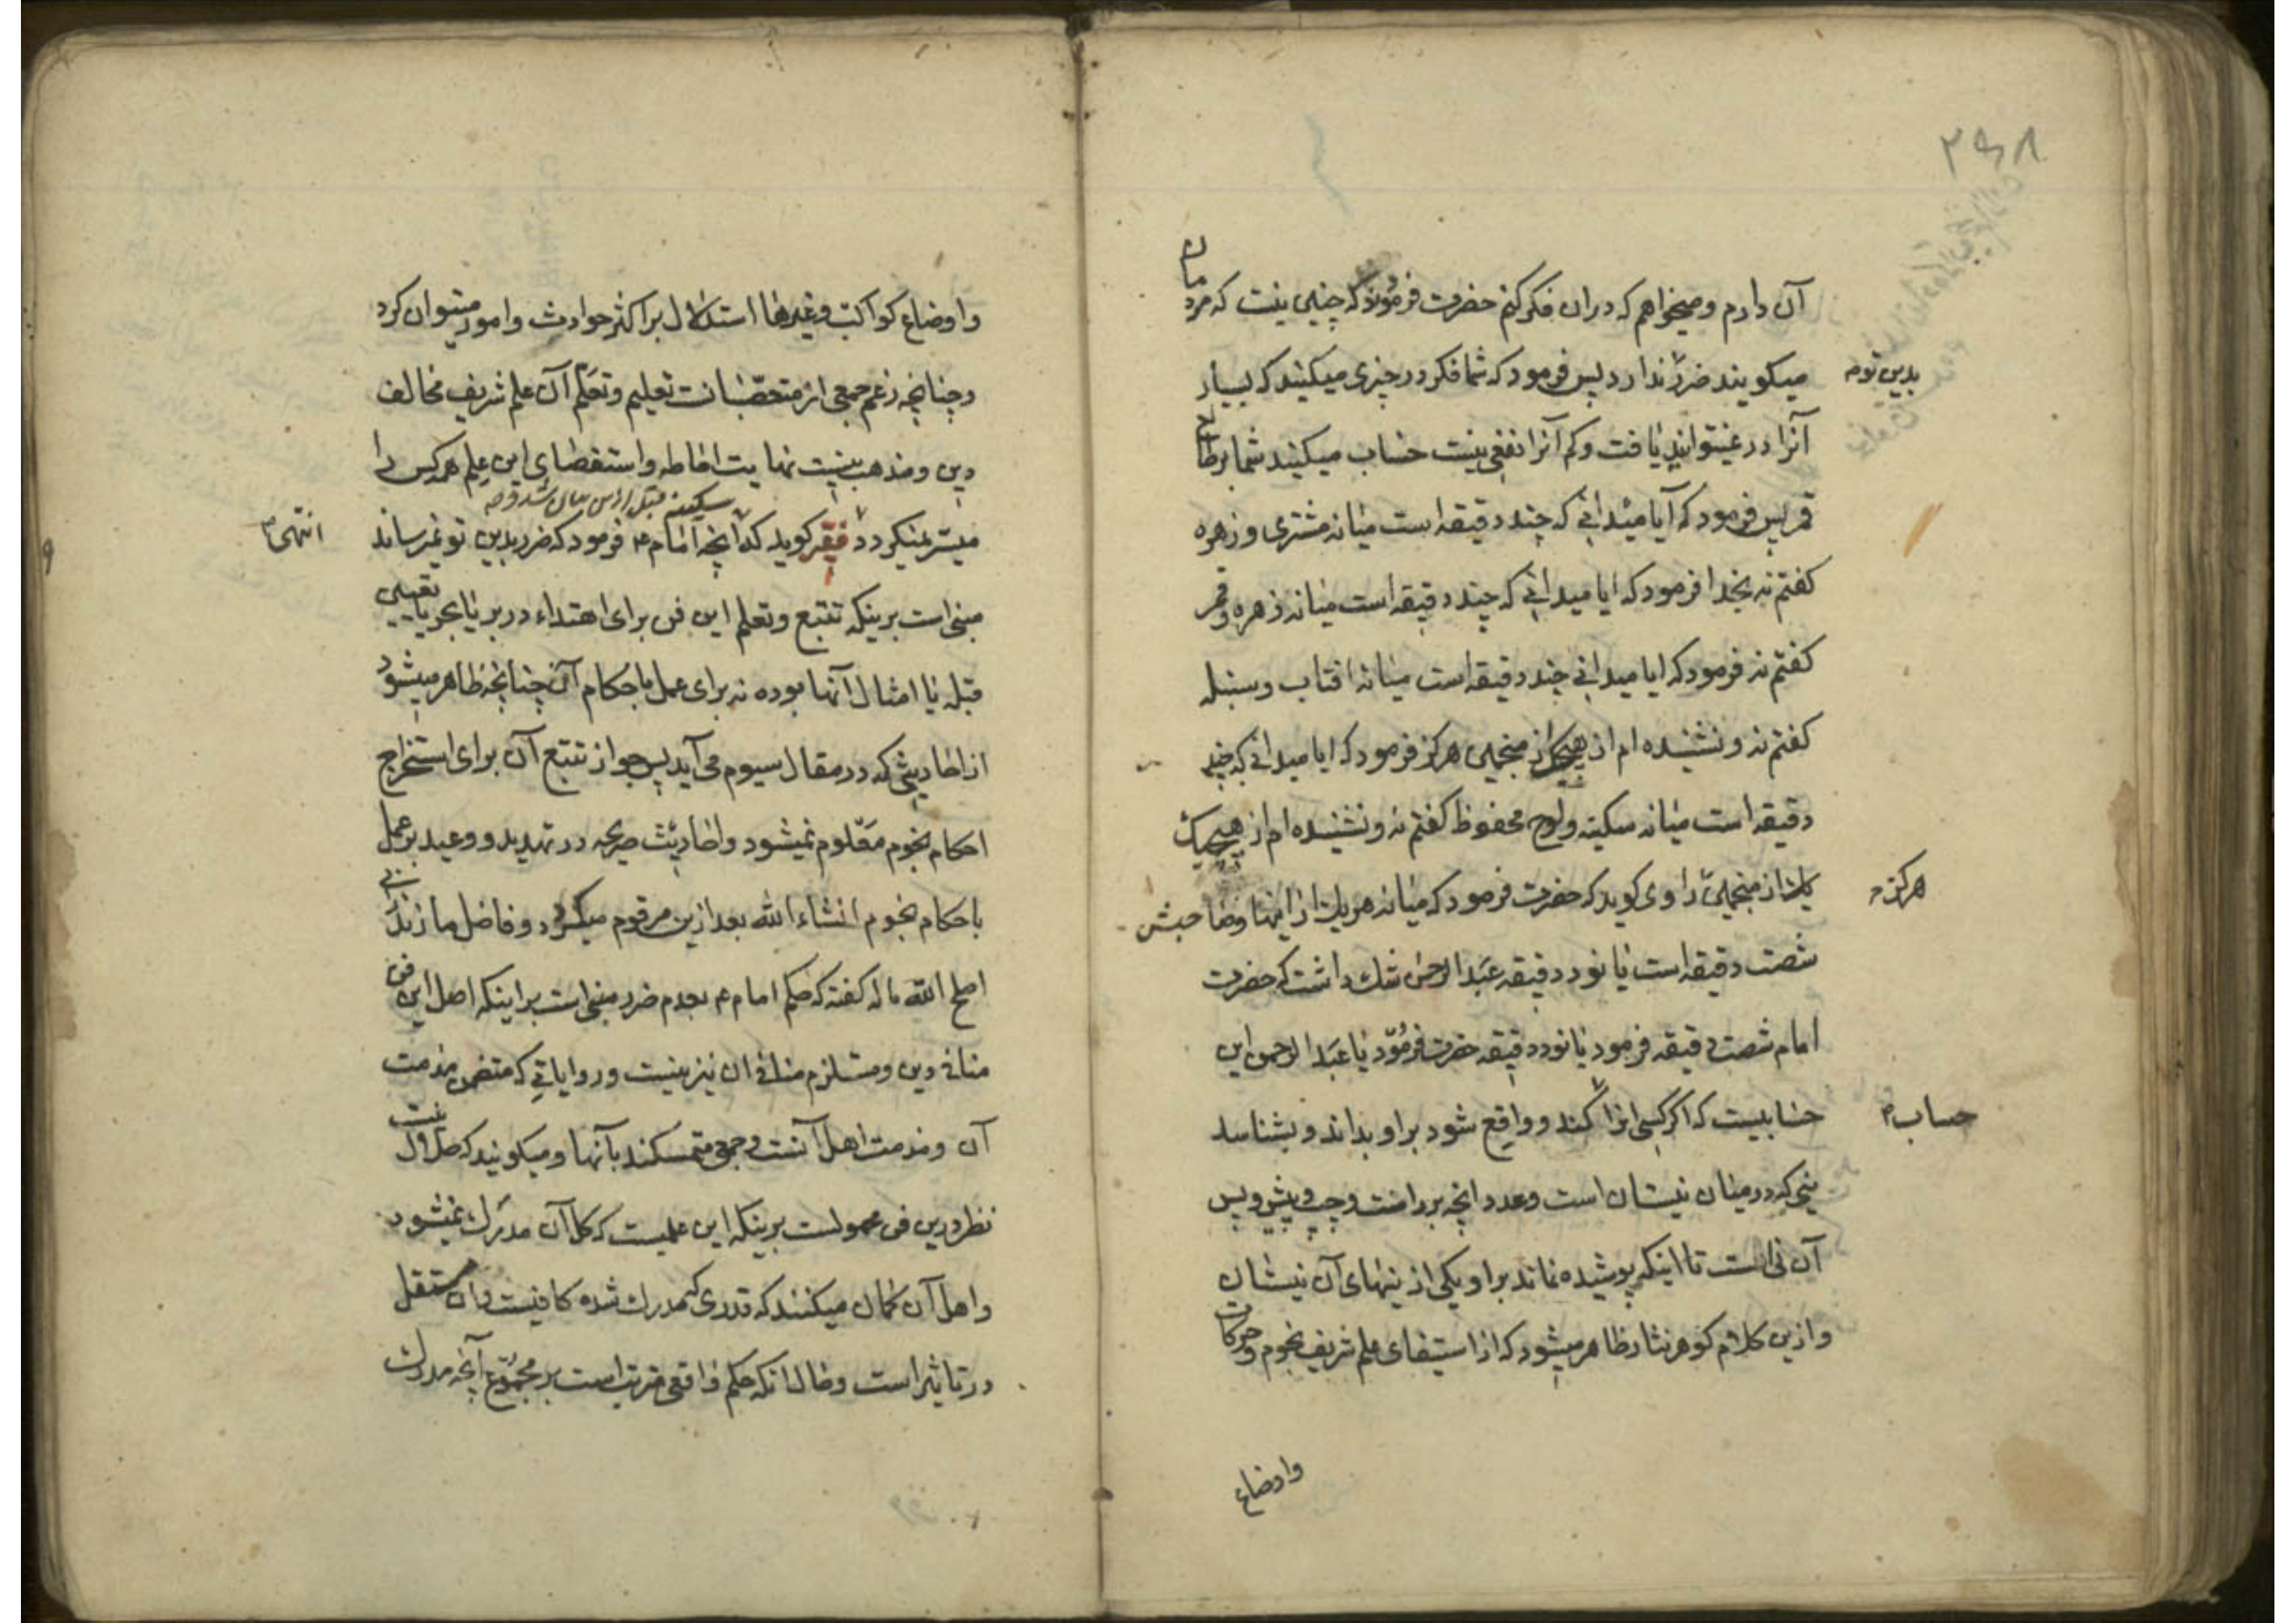 ۲۹۸
آن دارم و میخواهم که در ان فکر کنم حضرت فرمود که چنین نیست که مردم
میکویند ضرر ندارد پس فرمود که شما فکر در چیزی میکنید که بسیار
بدین تو
آنرا در نمیتوانید یافت و کم آنرا نفعی نیست حساب میکنید شما بر طالع
قمر پس فرمود که آیا میدانی که چند دقیقه است میانه مشتری و زهره
کفتم نه بخدا فرمود که ایا میدانی که چند دقیقه است میانه زهره و قمر
کفتم نه فرمود که ایا میدانی چند دقیقه است میانه افتاب و سنبله
کفتم نه و نشنیده ام از هیچیک از منجمین هرکز فرمود که ایا میدانی که چند
دقیقه است میانه سکینه و لوح محفوظ کفتم نه و نشنیده ام از هیچیک
از منجمین راوی کوید که حضرت فرمود که میانه هر یک از اینها و صاحبش
هرکز
شصت دقیقه است یا نود دقیقه عبد الرحمن شك داشت که حضرت
امام شصت دقیقه فرمود یا نود دقیقه حضرت فرمود یا عبد الرحمن این
حسابیست که اکر کسی انرا کند و واقع شود بر او بداند و بشناسد
حساب
نیی که در میان نیستان است و عدد انچه بر راست و چپ و پیش و پس
آن نی است تا اینکه پوشیده نماند بر او یکی از نیهای آن نیستان
و ازین کلام کوهر نثار ظاهر میشود که از استیفای علم شریف نجوم و حرکات
واوضاع
واوضاع کواکب و غیرها استدلال بر اکثر حوادث و امور میتوان کرد
و چنانچه زعم جمعی از متعصبانست تعلیم و تعلم آن علم شریف مخالف
دین و مذهب نیست نهایت احاطه و استقصای این علم هر کس را
سکینه قبل ازین بیان شد
میسر نمیکردد فقیر کوید که آنچه امام ع فرمود که ضرر بدین تو نمیرساند
انتهی
مبنی است برینکه تتبع و تعلم این فن برای اهتداء در بر یا بحر یا تعیین
قبله یا امثال آنها بوده نه برای عمل باحکام آن چنانچه ظاهر میشود
از احادیثی که در مقال سیوم می آید پس جواز تتبع آن برای استخراج
احکام نجوم معلوم نمیشود و احادیث صریحه در تهدید و وعید بر عمل
باحکام نجوم انشاء الله بعد ازین مرقوم میکردد و فاضل مازندرانی
اصلح الله ماله کفته که حکم امام ع بعدم ضرر مبنی است بر اینکه اصل این فن
منافی دین و مستلزم منافی ان نیز نیست و روایاتی که متضمن مذمت
آن و مذمت اهل آنست و جمعی متمسکند بآنها و میکویند که حلال نیست
نظر درین فن محمولست برینکه این علمیست که کل آن مدرك نمیشود
و اهل آن کمان میکنند که قدری که مدرك شده کافیست و ان مستقل
در تاثیر است و حال انکه حکم واقعی مترتب است بر مجموع آنچه مدرك